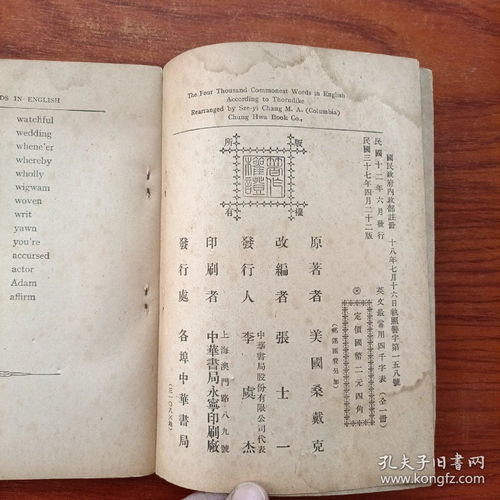 DS IN ENGLISH
watchful
wedding
whene'er
whereby
wholly
wigwam
woven
writ
yawn
you're
accursed
actor
Adam
affirm
The Four Thousand Commonest Words in English
According to Thorndike
Rearranged by Sze-yi Chang M. A. (Columbia)
Chung Hwa Book Co.,
國民政府內政部註冊 十八年七月十六日執照警字第一五八號
民國十二年六月發行
民國三十七年四月二十二版
英文最常用四千字表(全一冊)
定價國幣二元四角
(郵運匯費另加)
原著者 美國桑戴克
改編者 張士一
發行人 李虞杰
中華書局股份有限公司代表
印刷者 中華書局永寧印刷廠
上海澳門路八九號
發行處 各埠中華書局
版權所有
孔夫子旧书网
www.kongfz.com